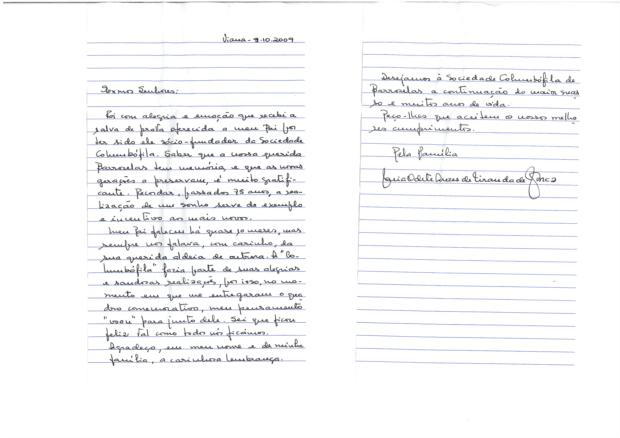 Viana - 9.10.2009
Exmos Senhores:
Foi com alegria e emoção que recebi a
salva de prata oferecida a meu Pai por
ter sido ele sócio-fundador da Sociedade
Columbófila. Saber que a nossa querida
Barroselas tem memória, e que as novas
gerações a preservam, é muito gratifi-
cante. Recordar, passados 75 anos, a rea-
lização de um sonho serve de exemplo
e incentivo aos mais novos.
Meu Pai faleceu há quase 30 meses, mas
sempre nos falava, com carinho, da
sua querida aldeia de outrora. A "Co-
lumbófila" fazia parte de suas alegrias
e saudosas realizações, por isso, no mo-
mento em que me entregaram o qua-
dro comemorativo, meu pensamento
"voou" para junto dele. Sei que ficou
feliz tal como todos nós ficámos.
Agradeço, em meu nome e da minha
família, a carinhosa lembrança.
Desejamos à Sociedade Columbófila de
Barroselas a continuação do maior suces-
so e muitos anos de vida.
Peço-lhes que aceitem os nossos melho-
res cumprimentos.
Pela Família
Maria Odete de Miranda de